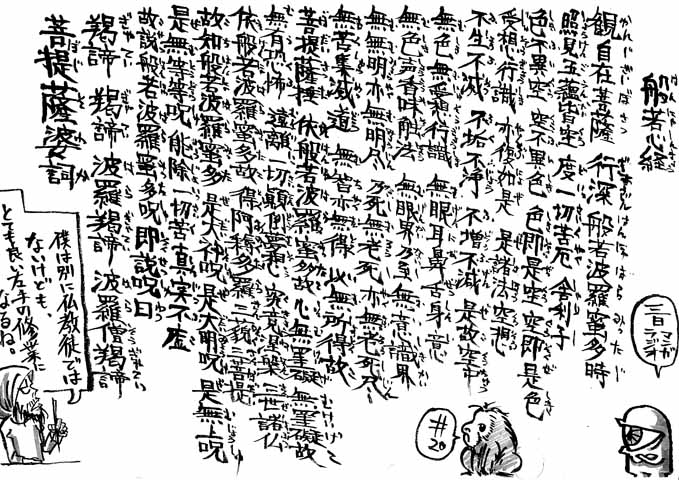 般若心経
観自在菩薩 行深般若波羅蜜多時
照見五蘊皆空 度一切苦厄 舎利子
色不異空 空不異色 色即是空 空即是色
受想行識 亦復如是 是諸法空想
不生不滅 不垢不浄 不増不減 是故空中
無色無受想行識 無眼耳鼻舌身意
無色声香味触法 無眼界乃至無意識界
無無明亦無無明尽 乃至無老死 亦無老死尽
無苦集滅道 無智亦無得 以無所得故
菩提薩埵 依般若波羅蜜多故 心無罣礙 無罣礙故
無有恐怖 遠離一切顛倒夢想 究竟涅槃 三世諸仏
依般若波羅蜜多故 得阿耨多羅三藐三菩提
故知般若波羅蜜多 是大神呪 是大明呪 是無上呪
是無等等呪 能除一切苦 真実不虚
故説般若波羅蜜多呪 即説呪曰
羯諦 羯諦 波羅羯諦 波羅僧羯諦
菩提薩婆訶
#20
僕は別に仏教徒では
ないけども、
とても良い左手の修業に
なるね。